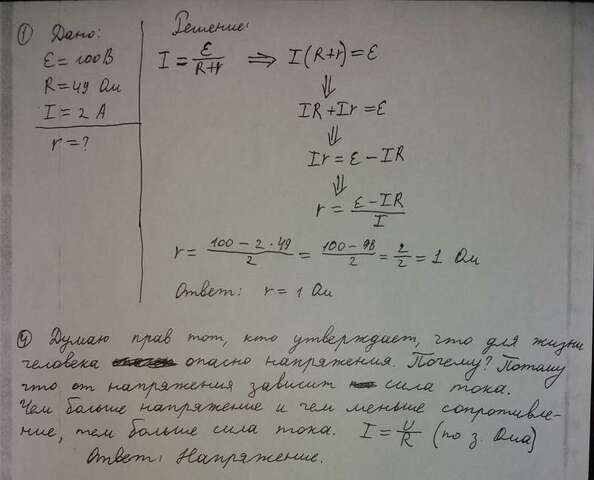 ① Дано:
Ɛ = 100В
R = 49 Ом
I = 2 А
r = ?
Решение:
I = Ɛ/(R+r) ⇒ I(R+r) = Ɛ
⇓
IR + Ir = Ɛ
⇓
Ir = Ɛ - IR
⇓
r = (Ɛ - IR)/I
r = (100 - 2 · 49)/2 = (100 - 98)/2 = 2/2 = 1 Ом
Ответ: r = 1 Ом
④ Думаю прав тот, кто утверждает, что для жизни
человека опасно напряжения. Почему? Потому
что от напряжения зависит сила тока.
Чем больше напряжение и чем меньше сопротивле-
ние, тем больше сила тока. I = U/R (по з. Ома)
Ответ: Напряжение.